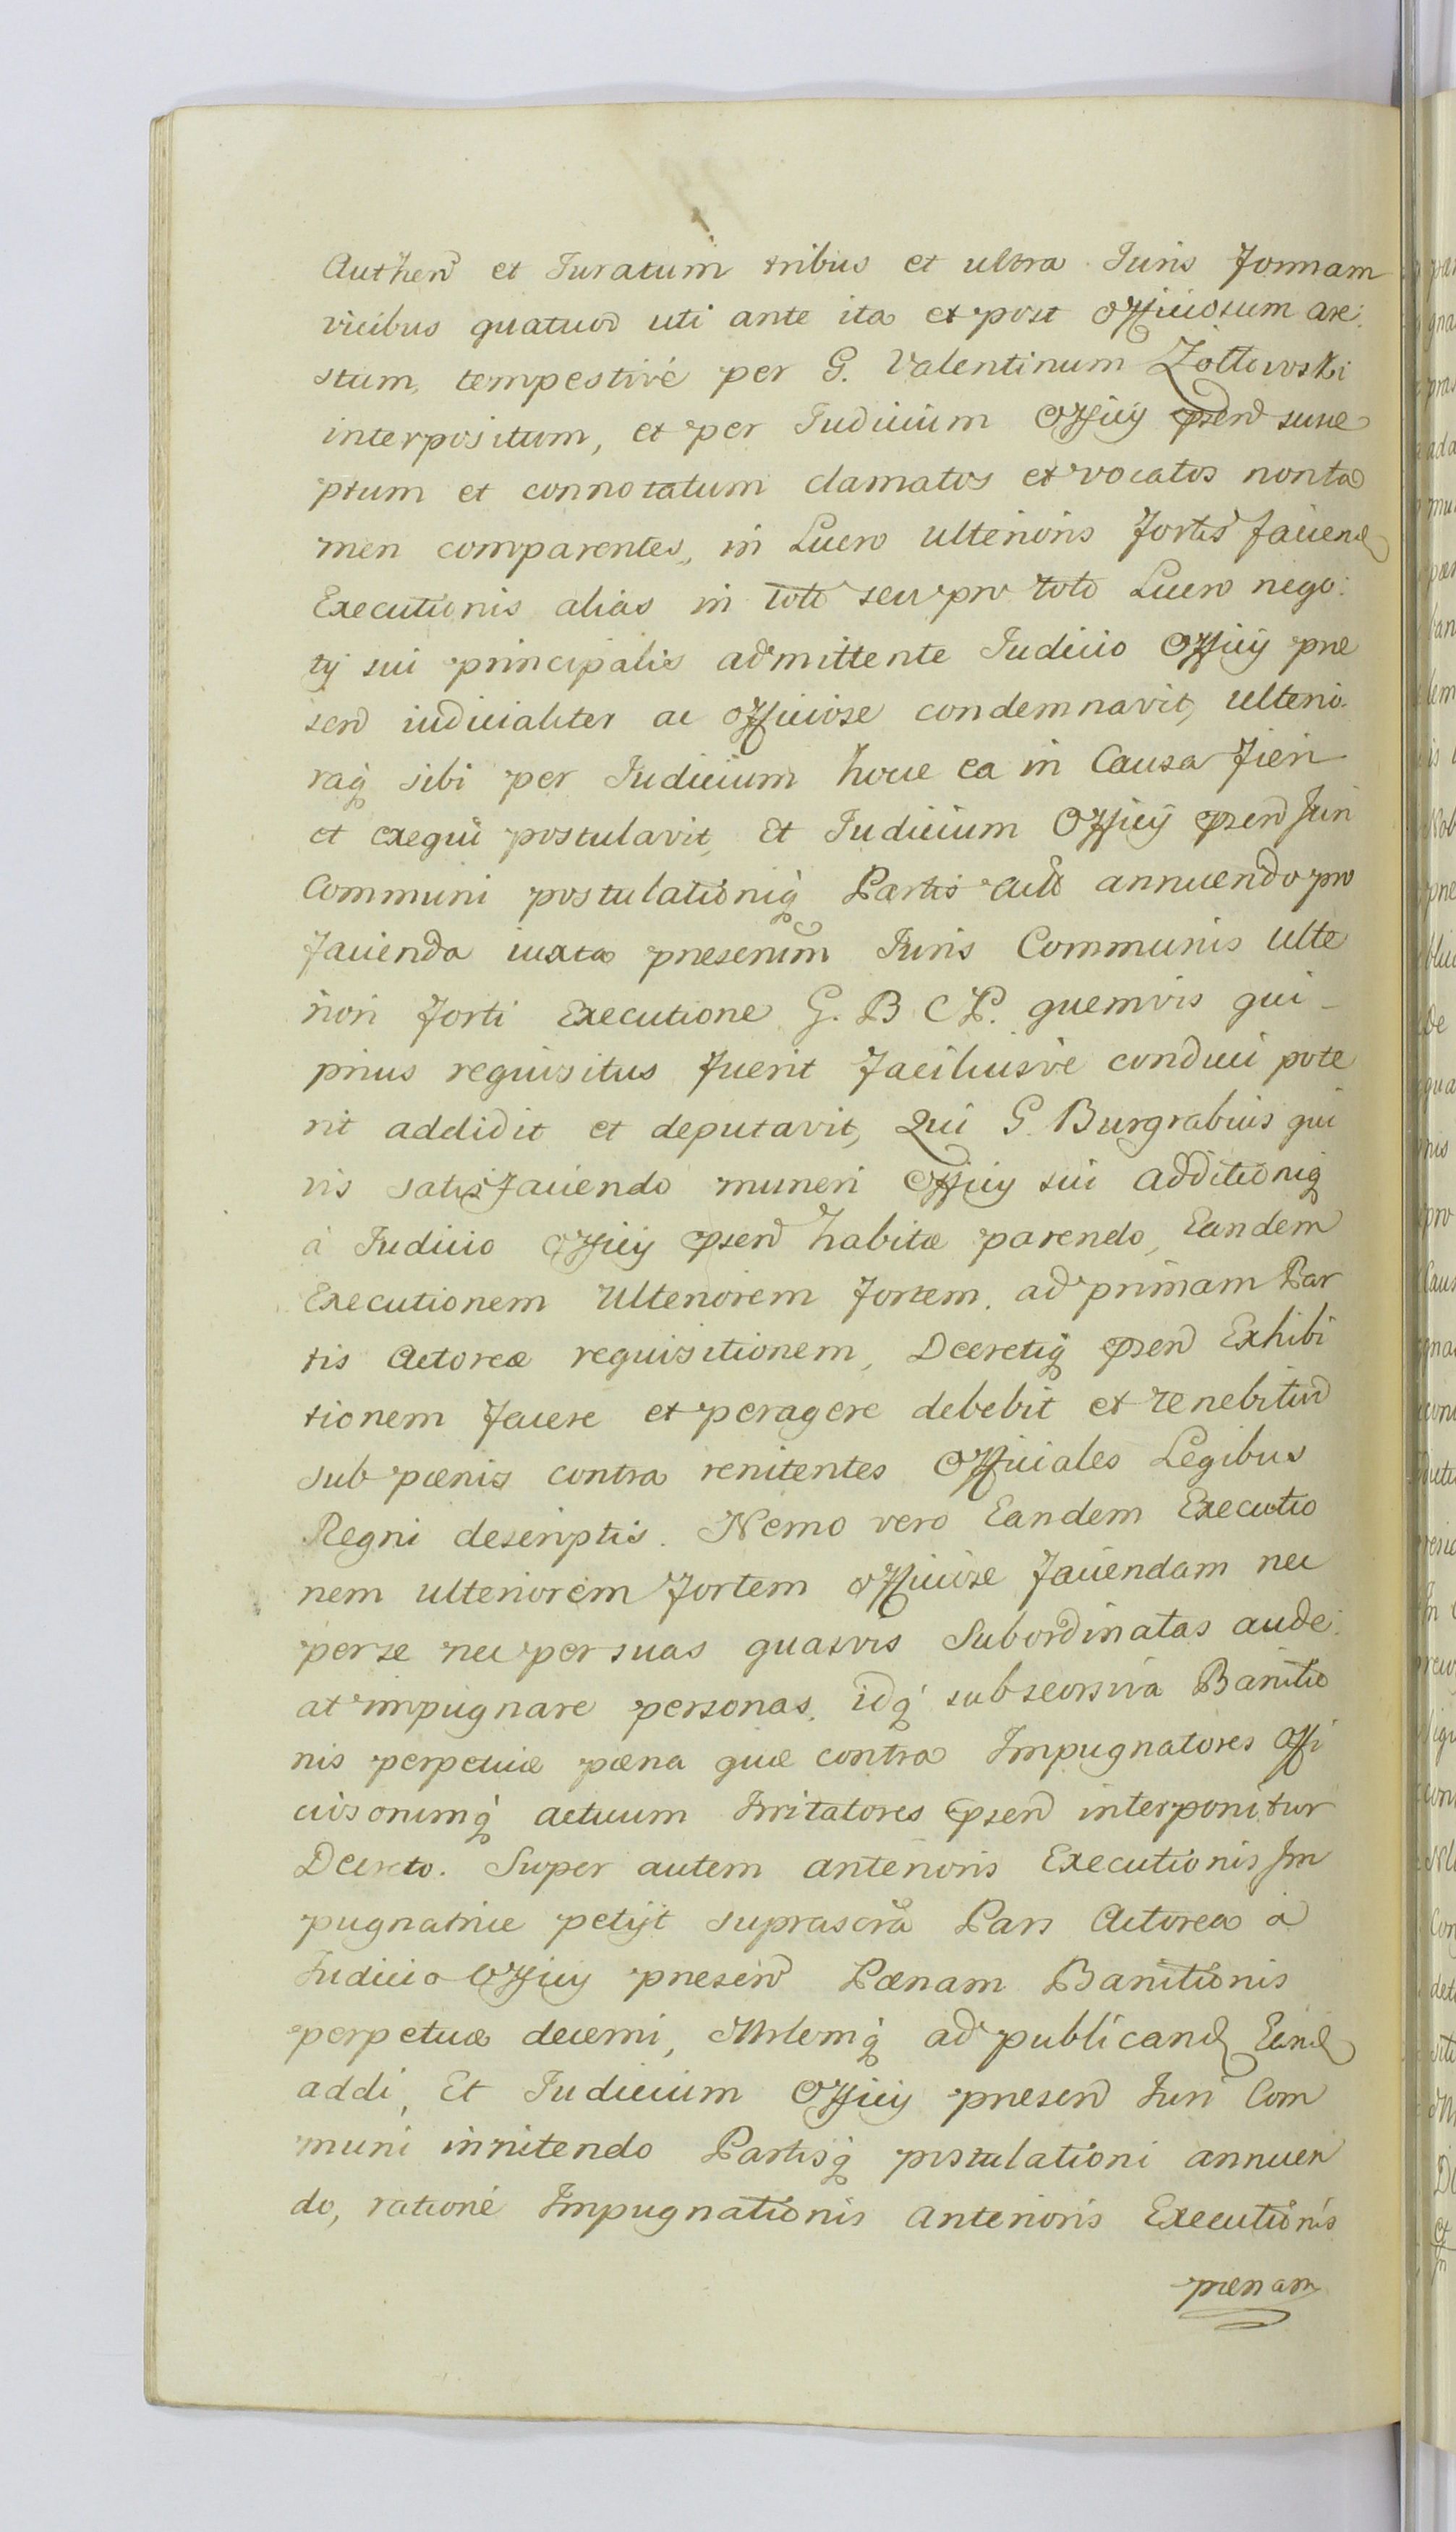 Authen et Juratum tribus et ultra Juris formam
vicibus quatuor uti ante ita et post officiosum are:
stum, tempestivé per G. Valentinum Zółtowski
interpositum, et per Judicium Officij psen susce
ptum et connotatum clamatos et vocatos non ta
men comparentes, in Lucro ulterioris fortis faciend
Executionis alias in toto seu pro toto Lucro nego:
tij sui principalis admittente Judicio Officij prae
sen iudicialiter ac officiose condemnavit, ulterio
raq sibi per Judicium hocce ea in Causa fieri
et exequi postulavit, Et Judicium Officij psen Juri
Communi postulationiq Partis Act annuendo pro
facienda iuxta praescrium Juris Communis ulte
riori forti Executione G. B. C. P. quemvis qui
prius requisitus fuerit faciliusve conduci pote
rit addidit et deputavit, Qui G. Burgrabius qui
vis satisfaciendo muneri Officij sui additioniq
à Judicio Officij psen habitae parendo, Eandem
Executionem Ulteriorem fortem, ad primam Par
tis Actoreae requisitionem, Decretiq psen Exhibi
tionem facere et peragere debebit et tenebitur
sub poenis contra renitentes Officiales Legibus
Regni descriptis. Nemo vero Eandem Executio
nem ulteriorem fortem officiose faciendam nec
per se nec per suas quasvis Subordinatas aude:
at impugnare personas, idq sub seorsiva Banitio
nis perpetuae poena quae contra Impugnatores Offi
ciosorumq actuum Irritatores psen interponitur
Decreto. Super autem anterioris Executionis Im
pugnatrice petijt suprascra Pars Actorea a
Judicio Officij praesen Poenam Banitionis
perpetuae decerni, Mrlemq ad publicand Eand
addi, Et Judicium Officij praesen Juri Com
muni innitendo Partisq postulationi annuen
do, ratione Impugnationis anterioris Executionis
poenam